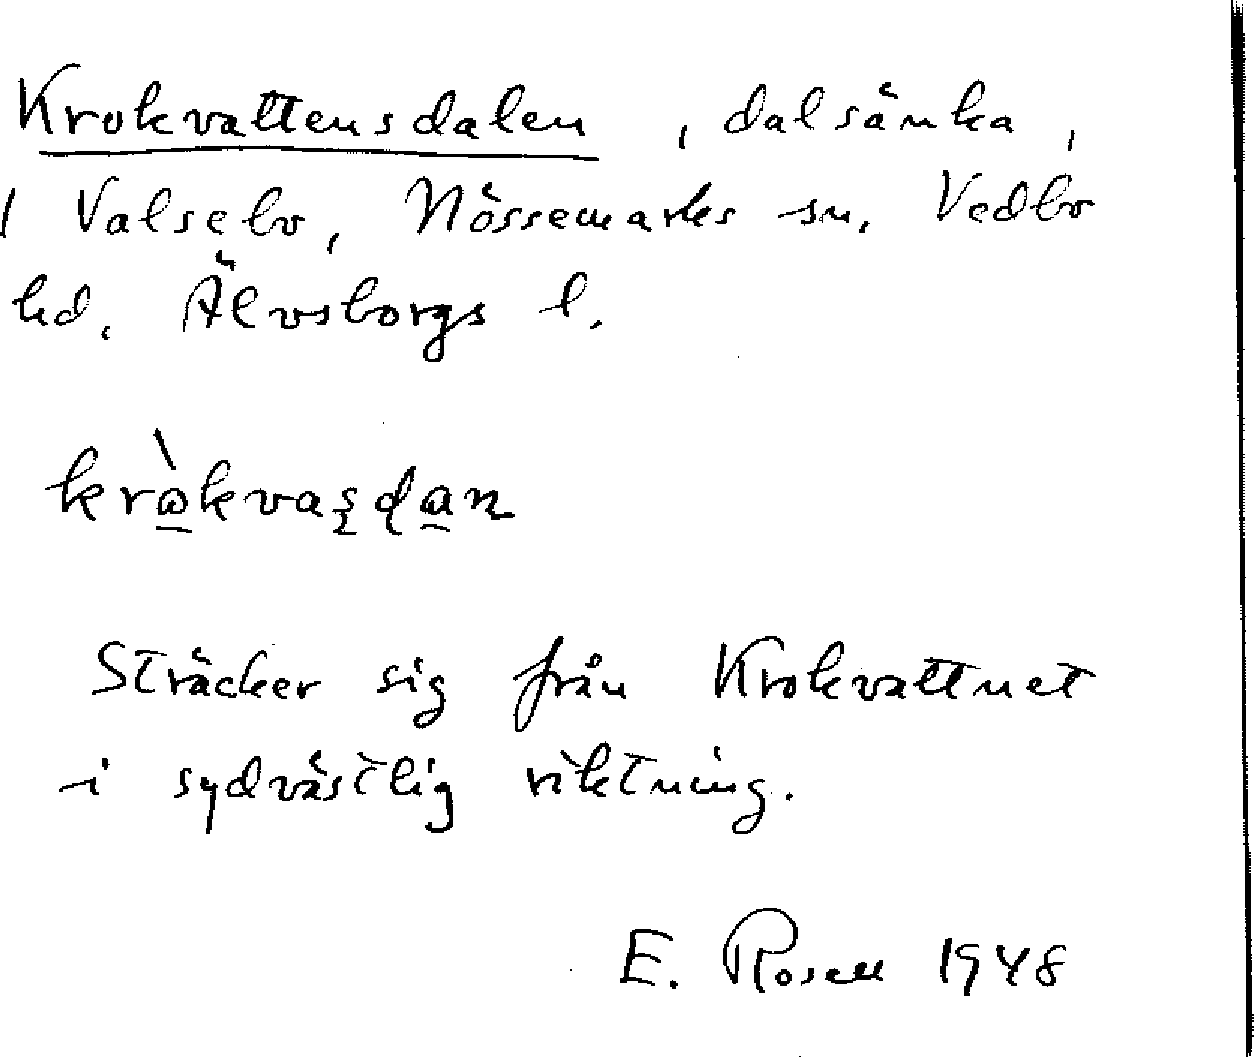 Krokvattensdalen, dalsänka,
i Valsebo, Nössemarks sn. Vedbo
hd. Älvsborgs l.
Sträcker sig från Krokvattnet
i sydvästlig riktning.
E. Rosell 1948